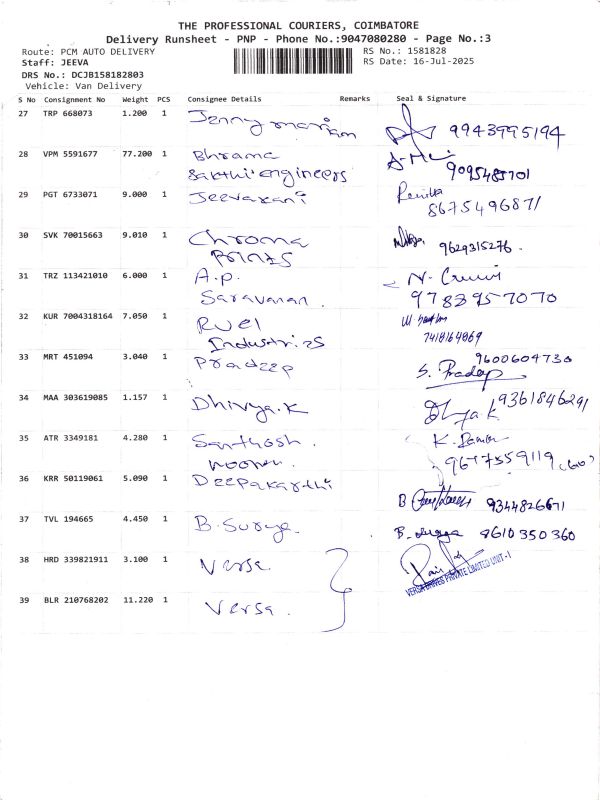 THE PROFESSIONAL COURIERS, COIMBATORE
Delivery Runsheet - PNP - Phone No.:9047080280 - Page No.:3
Route: PCM AUTO DELIVERY RS No.: 1581828
Staff: JEEVA RS Date: 16-Jul-2025
DRS No.: DCJB158182803
Vehicle: Van Delivery
S No Consignment No Weight PCS Consignee Details Remarks Seal & Signature
27 TRP 668073 1.200 1 Jenny mariam 9943995194
28 VPM 5591677 77.200 1 Bhrama
Sakthi engineers 9095485701
29 PGT 6733071 9.000 1 Jeevarani
8675496871
30 SVK 70015663 9.010 1 Chroma
Prints 9629315276.
31 TRZ 113421010 6.000 1 A.p.
Saravanan. 9783957070
32 KUR 7004318164 7.050 1 Ruel
Industries 7418164869
33 MRT 451094 3.040 1 Pradeep 9600604730
S. Pradeep
34 MAA 303619085 1.157 1 Dhivya.K 9361846291
35 ATR 3349181 4.280 1 Santhosh.
9677559119
36 KRR 50119061 5.090 1 Deepakarthi
9344826671
37 TVL 194665 4.450 1 B. Surya. 8610350360
38 HRD 339821911 3.100 1 Versa
VERSA DRIVES PRIVATE LIMITED UNIT-1
39 BLR 210768202 11.220 1 Versa.